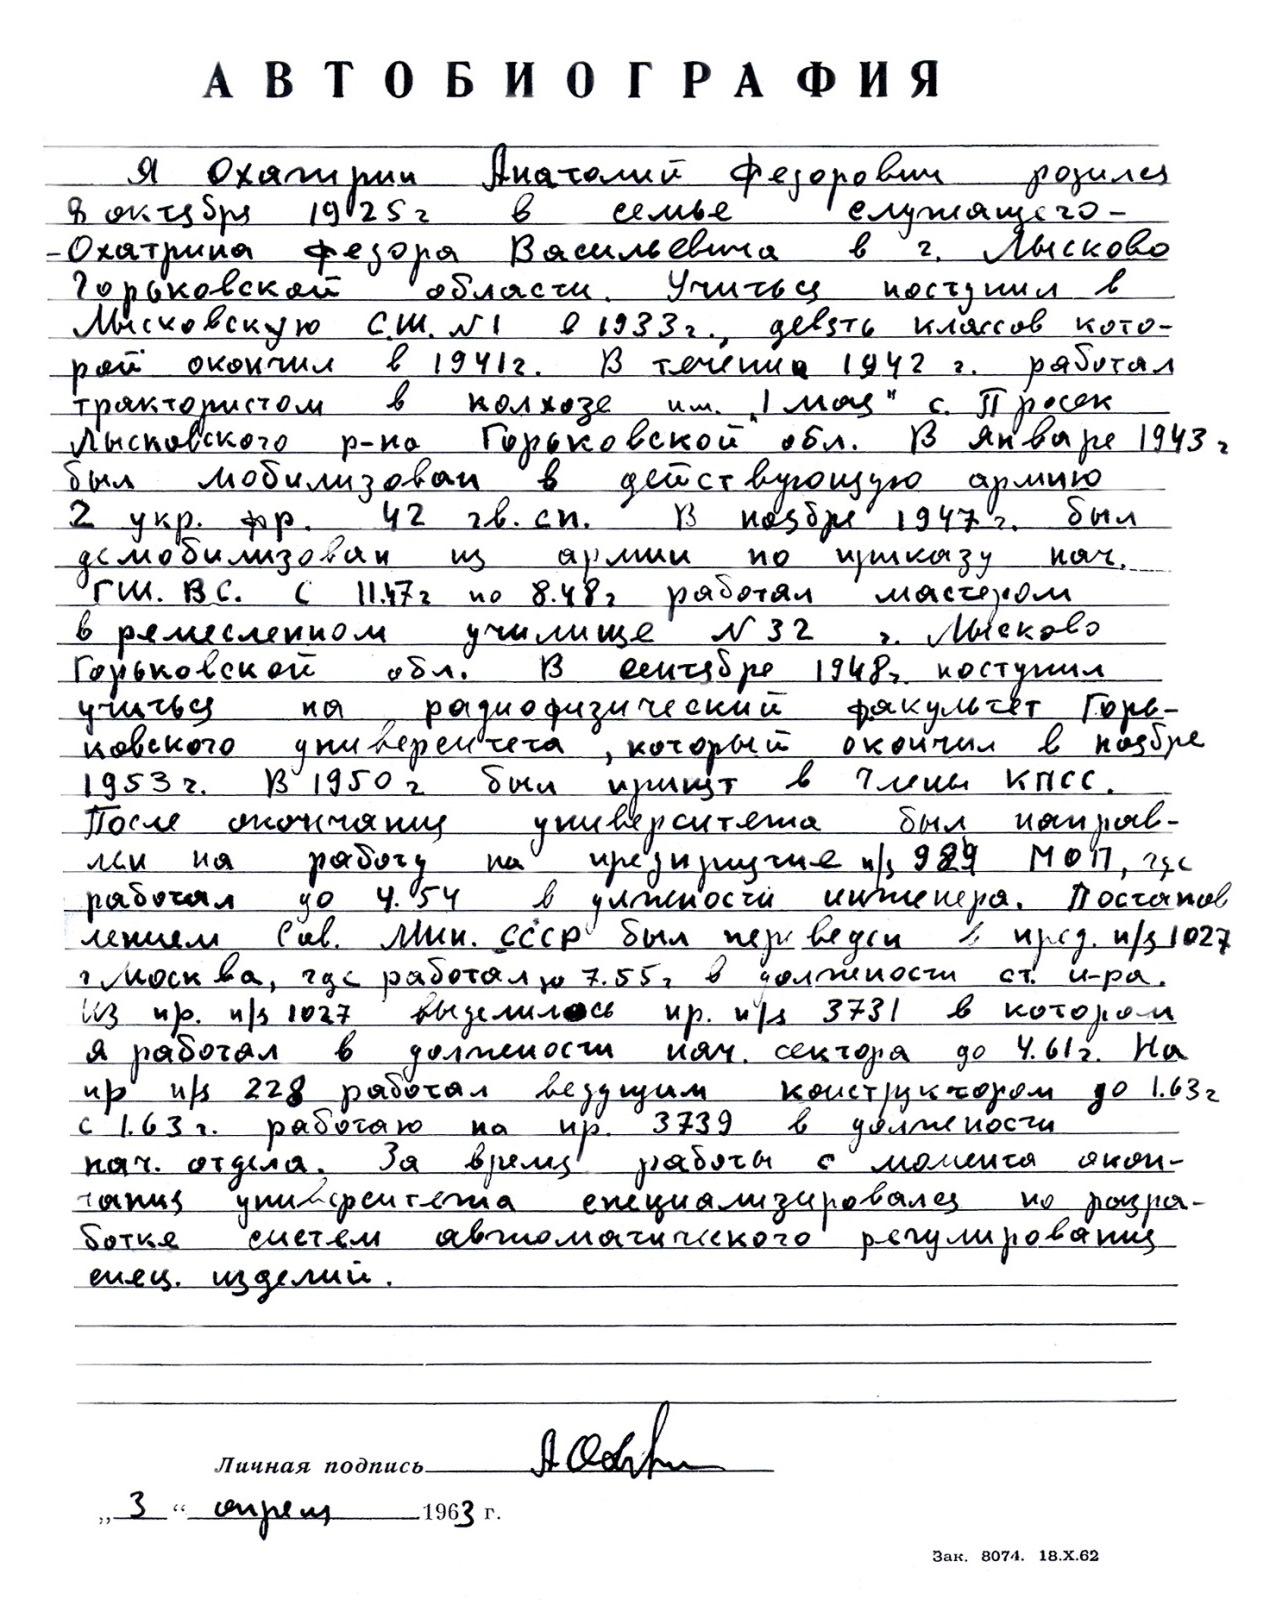 АВТОБИОГРАФИЯ
Я Охатрин Анатолий Федорович родился
8 октября 1925г в семье служащего-
-Охатрина Федора Васильевича в г. Лысково
Горьковской области. Учиться поступил в
Лысковскую С.Ш. N1 в 1933г., девять классов кото-
рой окончил в 1941г. В течении 1942 г. работал
трактористом в колхозе им. „1 мая" с. Просек
Лысковского р-на Горьковской обл. В январе 1943г
был мобилизован в действующую армию
2 укр. фр. 42 гв. сп. В ноябре 1947г. был
демобилизован из армии по приказу нач.
ГШ. ВС. С 11.47г по 8.48г работал мастером
в ремесленном училище N32 г. Лысково
Горьковской обл. В сентябре 1948г. поступил
учиться на радиофизический факультет Горь-
ковского университета, который окончил в ноябре
1953г. В 1950г был принят в члены КПСС.
После окончания университета был направ-
лен на работу на предприятие п/я 989 МОП, где
работал до 4.54 в должности инженера. Постанов
лением Сов. Мин. СССР был переведен в пред. п/я 1027
г Москва, где работал до 7.55г в должности ст. и-ра.
Из пр. п/я 1027 выделилось пр. п/я 3731 в котором
я работал в должности нач. сектора до 4.61г. На
пр п/я 228 работал ведущим конструктором до 1.63г
с 1.63г. работаю на пр. 3739 в должности
нач. отдела. За время работы с момента окон-
чания университета специализировался по разра-
ботке систем автоматического регулирования
спец. изделий.
Личная подпись
„ 3 “ апреля 1963 г.
Зак. 8074. 18.X.62